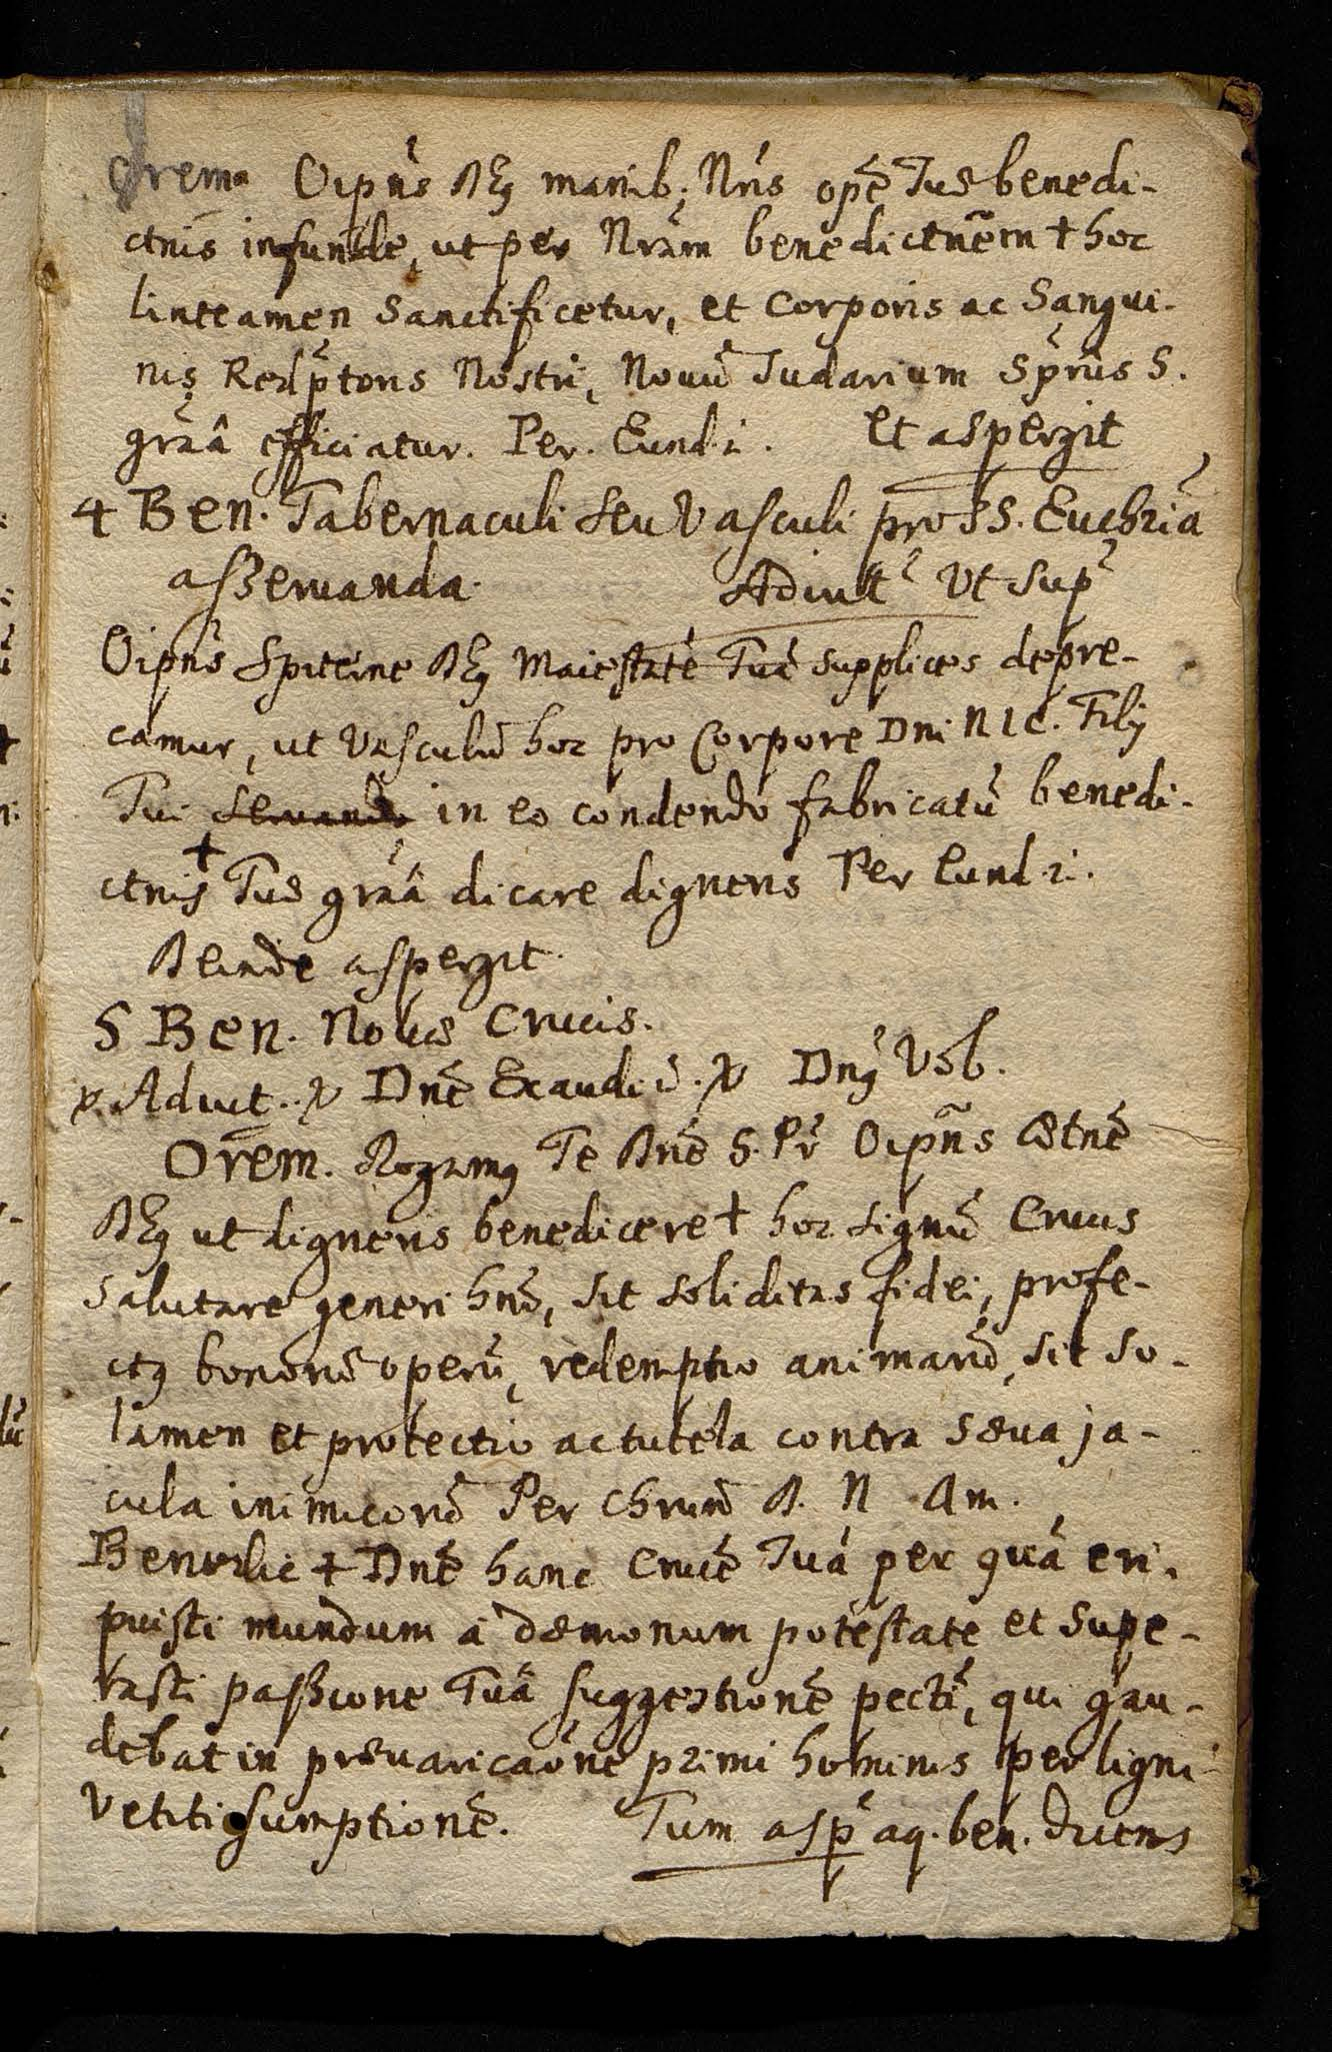 Orem. Oipñs Dẽs manib; Nris opẽ Tuæ benedi-
ctnis infunde, ut per Nrãm benedictnẽm + hoc
linteamen Sanctificetur, et Corporis ac Sangui-
nis Redp̃toris Nostri, Nouũ Sudarium Sp̃rus S.
grãâ efficiatur. Per. Eund. et aspergit
4 Ben. Tabernaculi seu Vasculi pro SS. Euchriã
asseruanda. Adiut ̃ Ut Sup ̃
Oipñs Spiterne Dẽs Maiestatẽ Tuã supplices depre-
camur, ut Vasculũ hoc pro Corpore Dni N I C. Filij
Tui seruando in eo condendo fabricatũ benedi-
+
ctnis Tuæ grãâ dicare digneris Per Eund.
Deinde aspergit.
5 Ben. Nouæ Crucis.
v. Adiut.. v Dnẽ Exaudi. v Dng Vob.
Orem. Rogamg Te Dnẽ S. Pr̃ Oipñs Ætnẽ
Dẽs ut digneris benedicere + hoc signũ Crucis
salutare generi hnõ, sit soliditas fidei, profe-
ctg bonorũ operũ, redemptio animarũ, sit so-
lamen et protectio ac tutela contra sæua ja-
cula inimicorũ Per Chrum D. N. Am.
Benedic + Dnẽ hanc Crucẽ Tuã per quã eri-
puisti mundum à dæmonum potestate et supe-
rasti passione Tuâ suggestionẽ pecti, qui gau-
debat in præuaricaõne primi hominis per ligni
Vetiti sumptionẽ. Tum asp̃ aq. ben. dicens